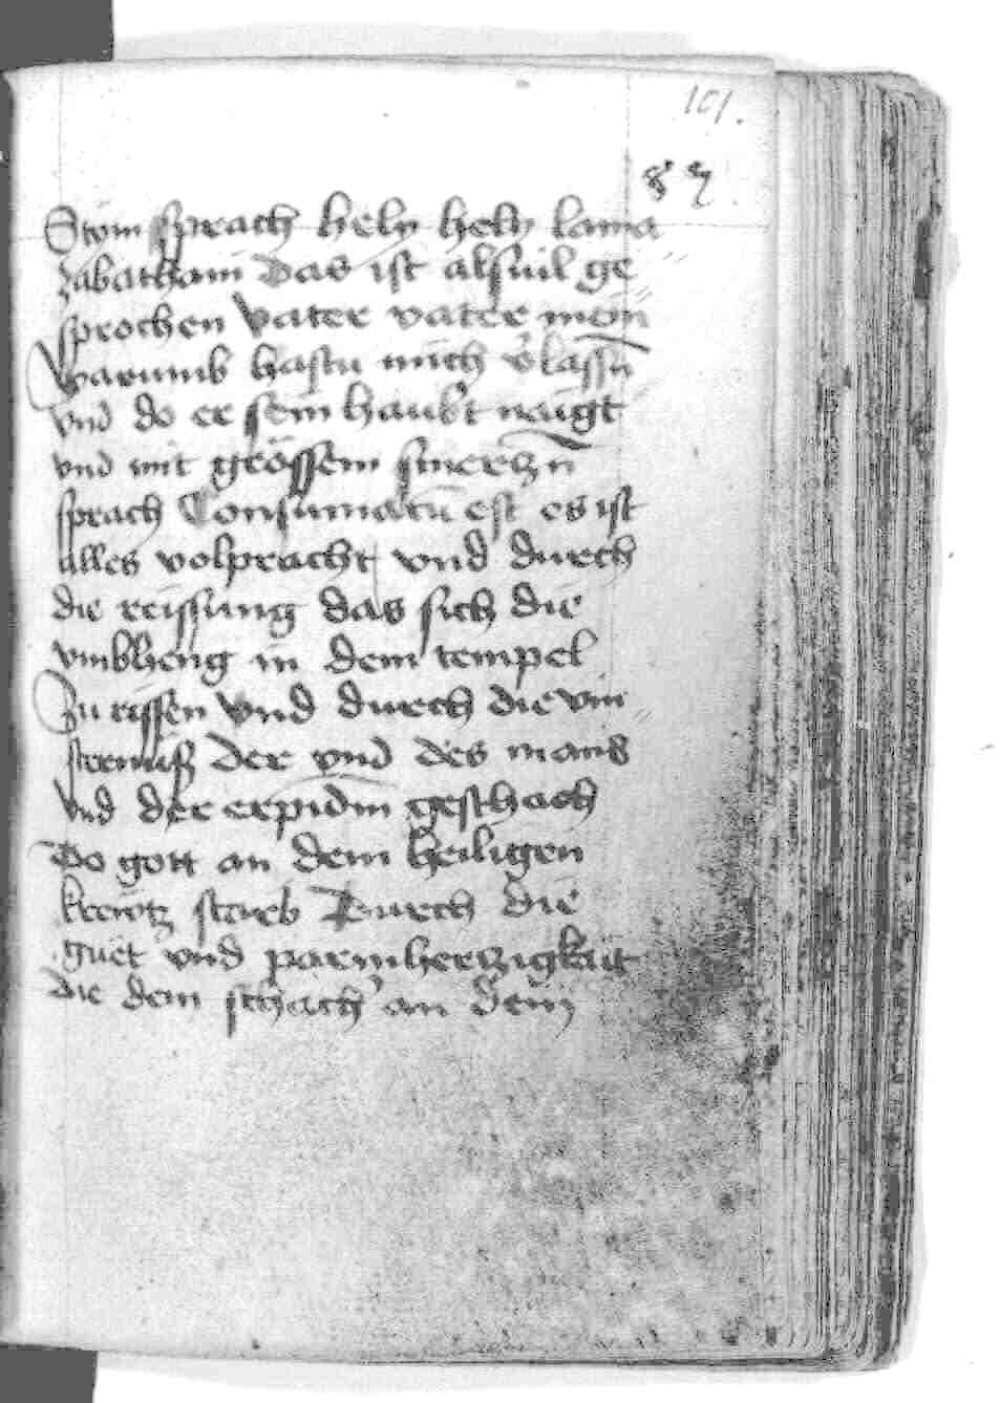 101.
87.
Stim sprach hely hely lama
zabathani das ist alsuil ge
sprochen Vater vater mein
Warumb hastu mich v̓lassn̄
vnd do er sein haubt naigt
vnd mit grössem smerczn̄
sprach Consumatū est es ist
alles volpracht vnd durch
die reissung das sich die
vmbheng in dem tempel
Zu rissen Vnd durch die vin
sternuß der vnd des mans
Vnd der erpidm̄ geschach
Do gott an dem heiligen
krewtz starb Durch die
guet vnd parmherczigkait
die dem schach̓ an dem